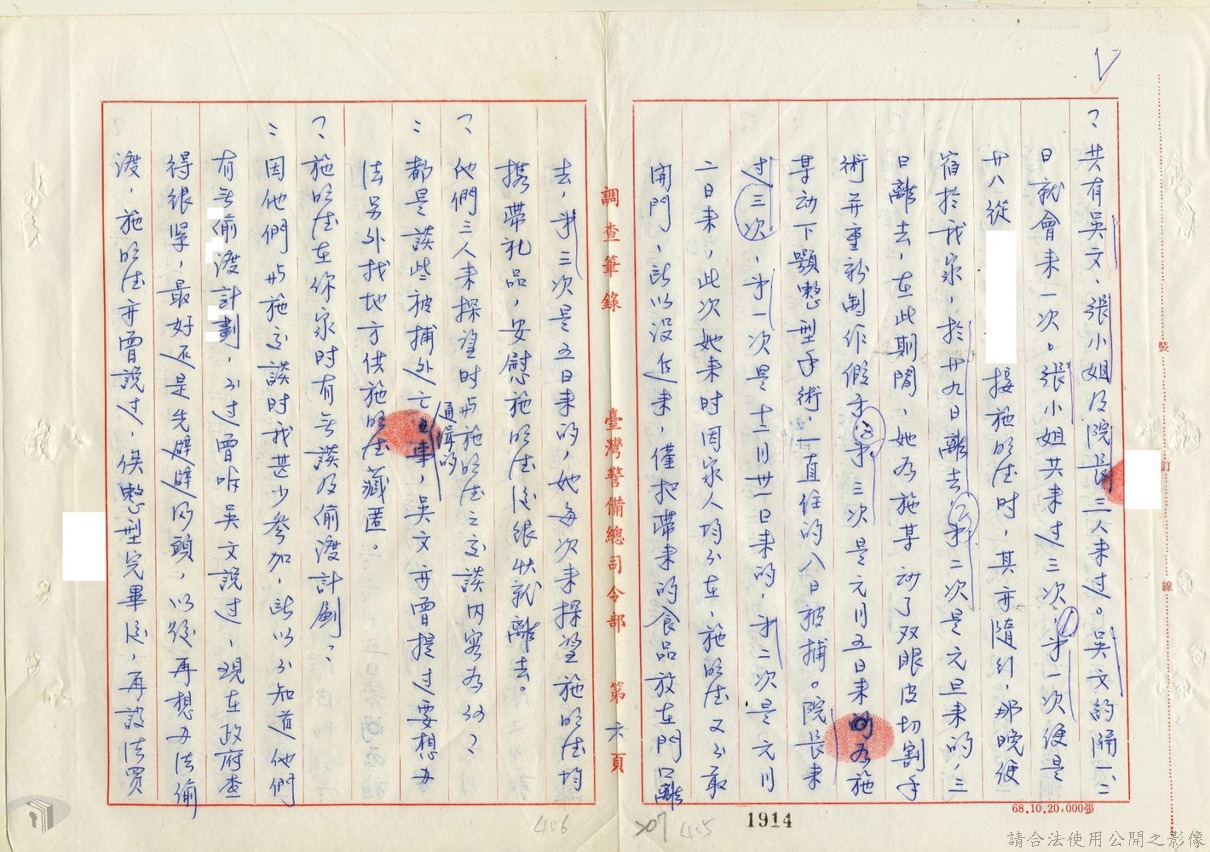 :共有吳文、張小姐及院長三人來過。吳文約隔一、二
日就會來一次。張小姐共來過三次,①第一次便是
廿八從
接施明德時,其亦隨行,那晚便
宿於我家,於廿九日離去②第二次是元旦來的,三
日離去,在此期間,她為施某動了双眼皮切割手
術并重新制作假牙③第三次是元月五日來的為施
某動下顎整型手術,一直住的八日被捕。院長來
过三次,第一次是十二月卅一日來的,第二次是元月
二日來,此次她來時因家人均不在,施明德又不敢
開門,所以没進來,僅把帶來的食品放在門口離
調查筆錄
臺灣警備總司令部
第六頁
去,第三次是五日來的,她每次來探望施明德均
携帶礼品,安慰施明德後很快就離去。
?他們三人來探望時與施明德之交談內容為何?
:都是談些被捕外之
通緝的
事,吳文亦曾提过要想办
法另外找地方供施明德藏匿。
?施明德在你家時有無談及偷渡計劃?
:因他們與施交談時我甚少參加,所以不知道他們
有無偷渡計劃,不过曾听吳文說过,現在政府查
得很緊,最好还是先避避風頭,以後再想办法偷
渡,施明德亦曾說过,俟整型完畢後,再設法買
裝
訂
線
68.10.20,000張
1914
406
207
405
請合法使用公開之影像